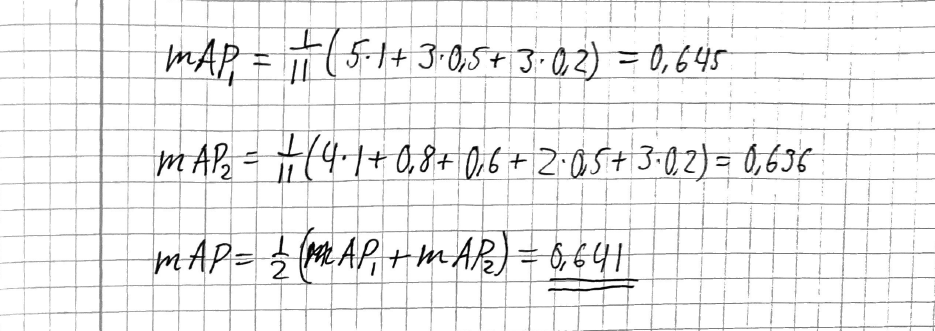 mAP₁ = 1/11 (5·1 + 3·0,5 + 3·0,2) = 0,645
mAP₂ = 1/11 (4·1 + 0,8 + 0,6 + 2·0,5 + 3·0,2) = 0,636
mAP = 1/2 (mAP₁ + mAP₂) = 0,641